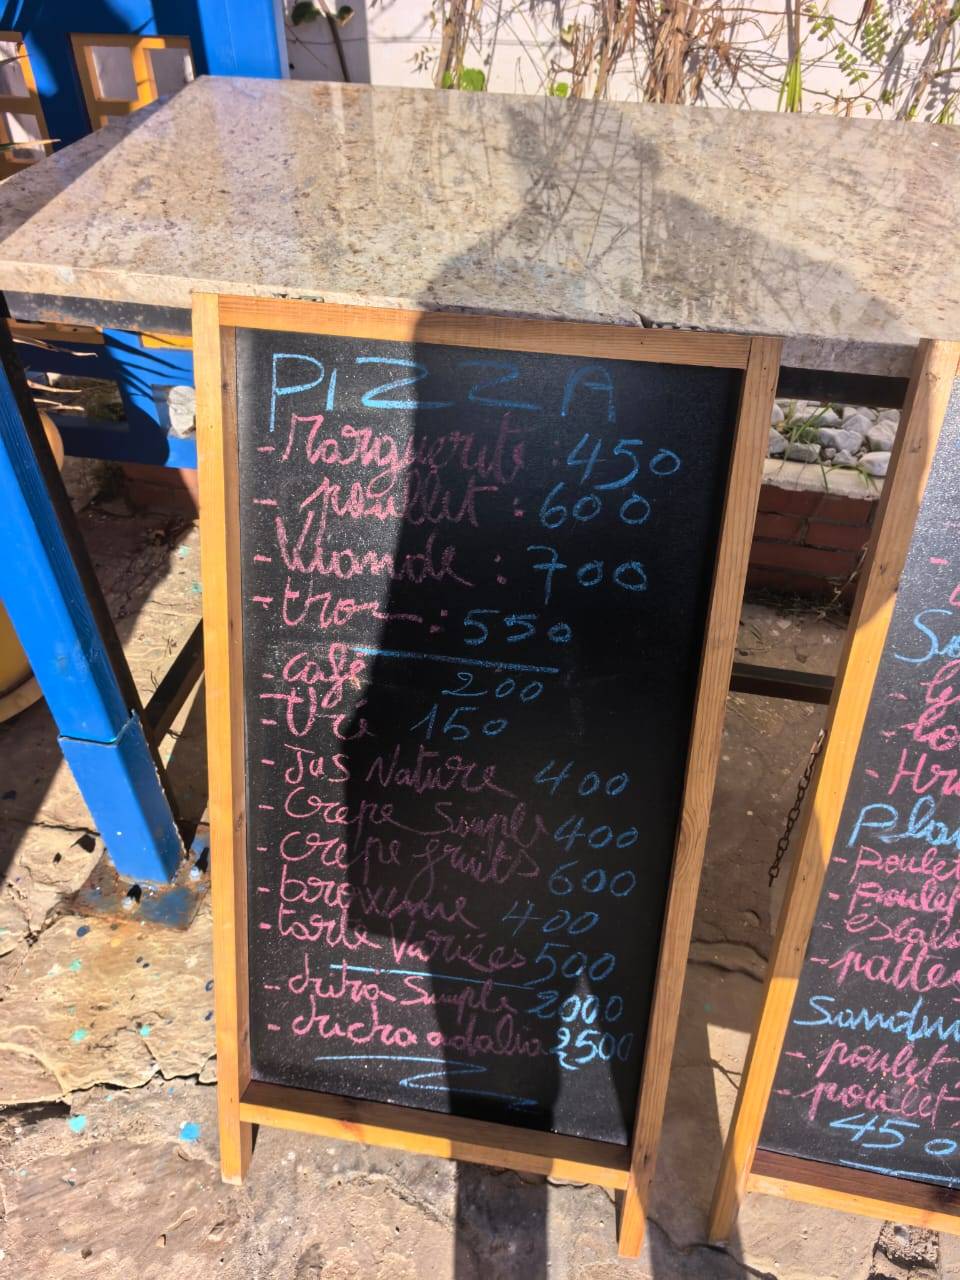 PIZZA
- Marguerite : 450
- poullet : 600
- Viande : 700
- thon : 550
- café 200
- Thé 150
- Jus Nature 400
- Crepe Simple 400
- Crepe fruits 600
- browenie 400
- tarte Variées 500
- Simple 2000
- 2500
So
Pla
- poulet
- poulet
- escalo
- patte
Sandw
- poulet
- poulet
450